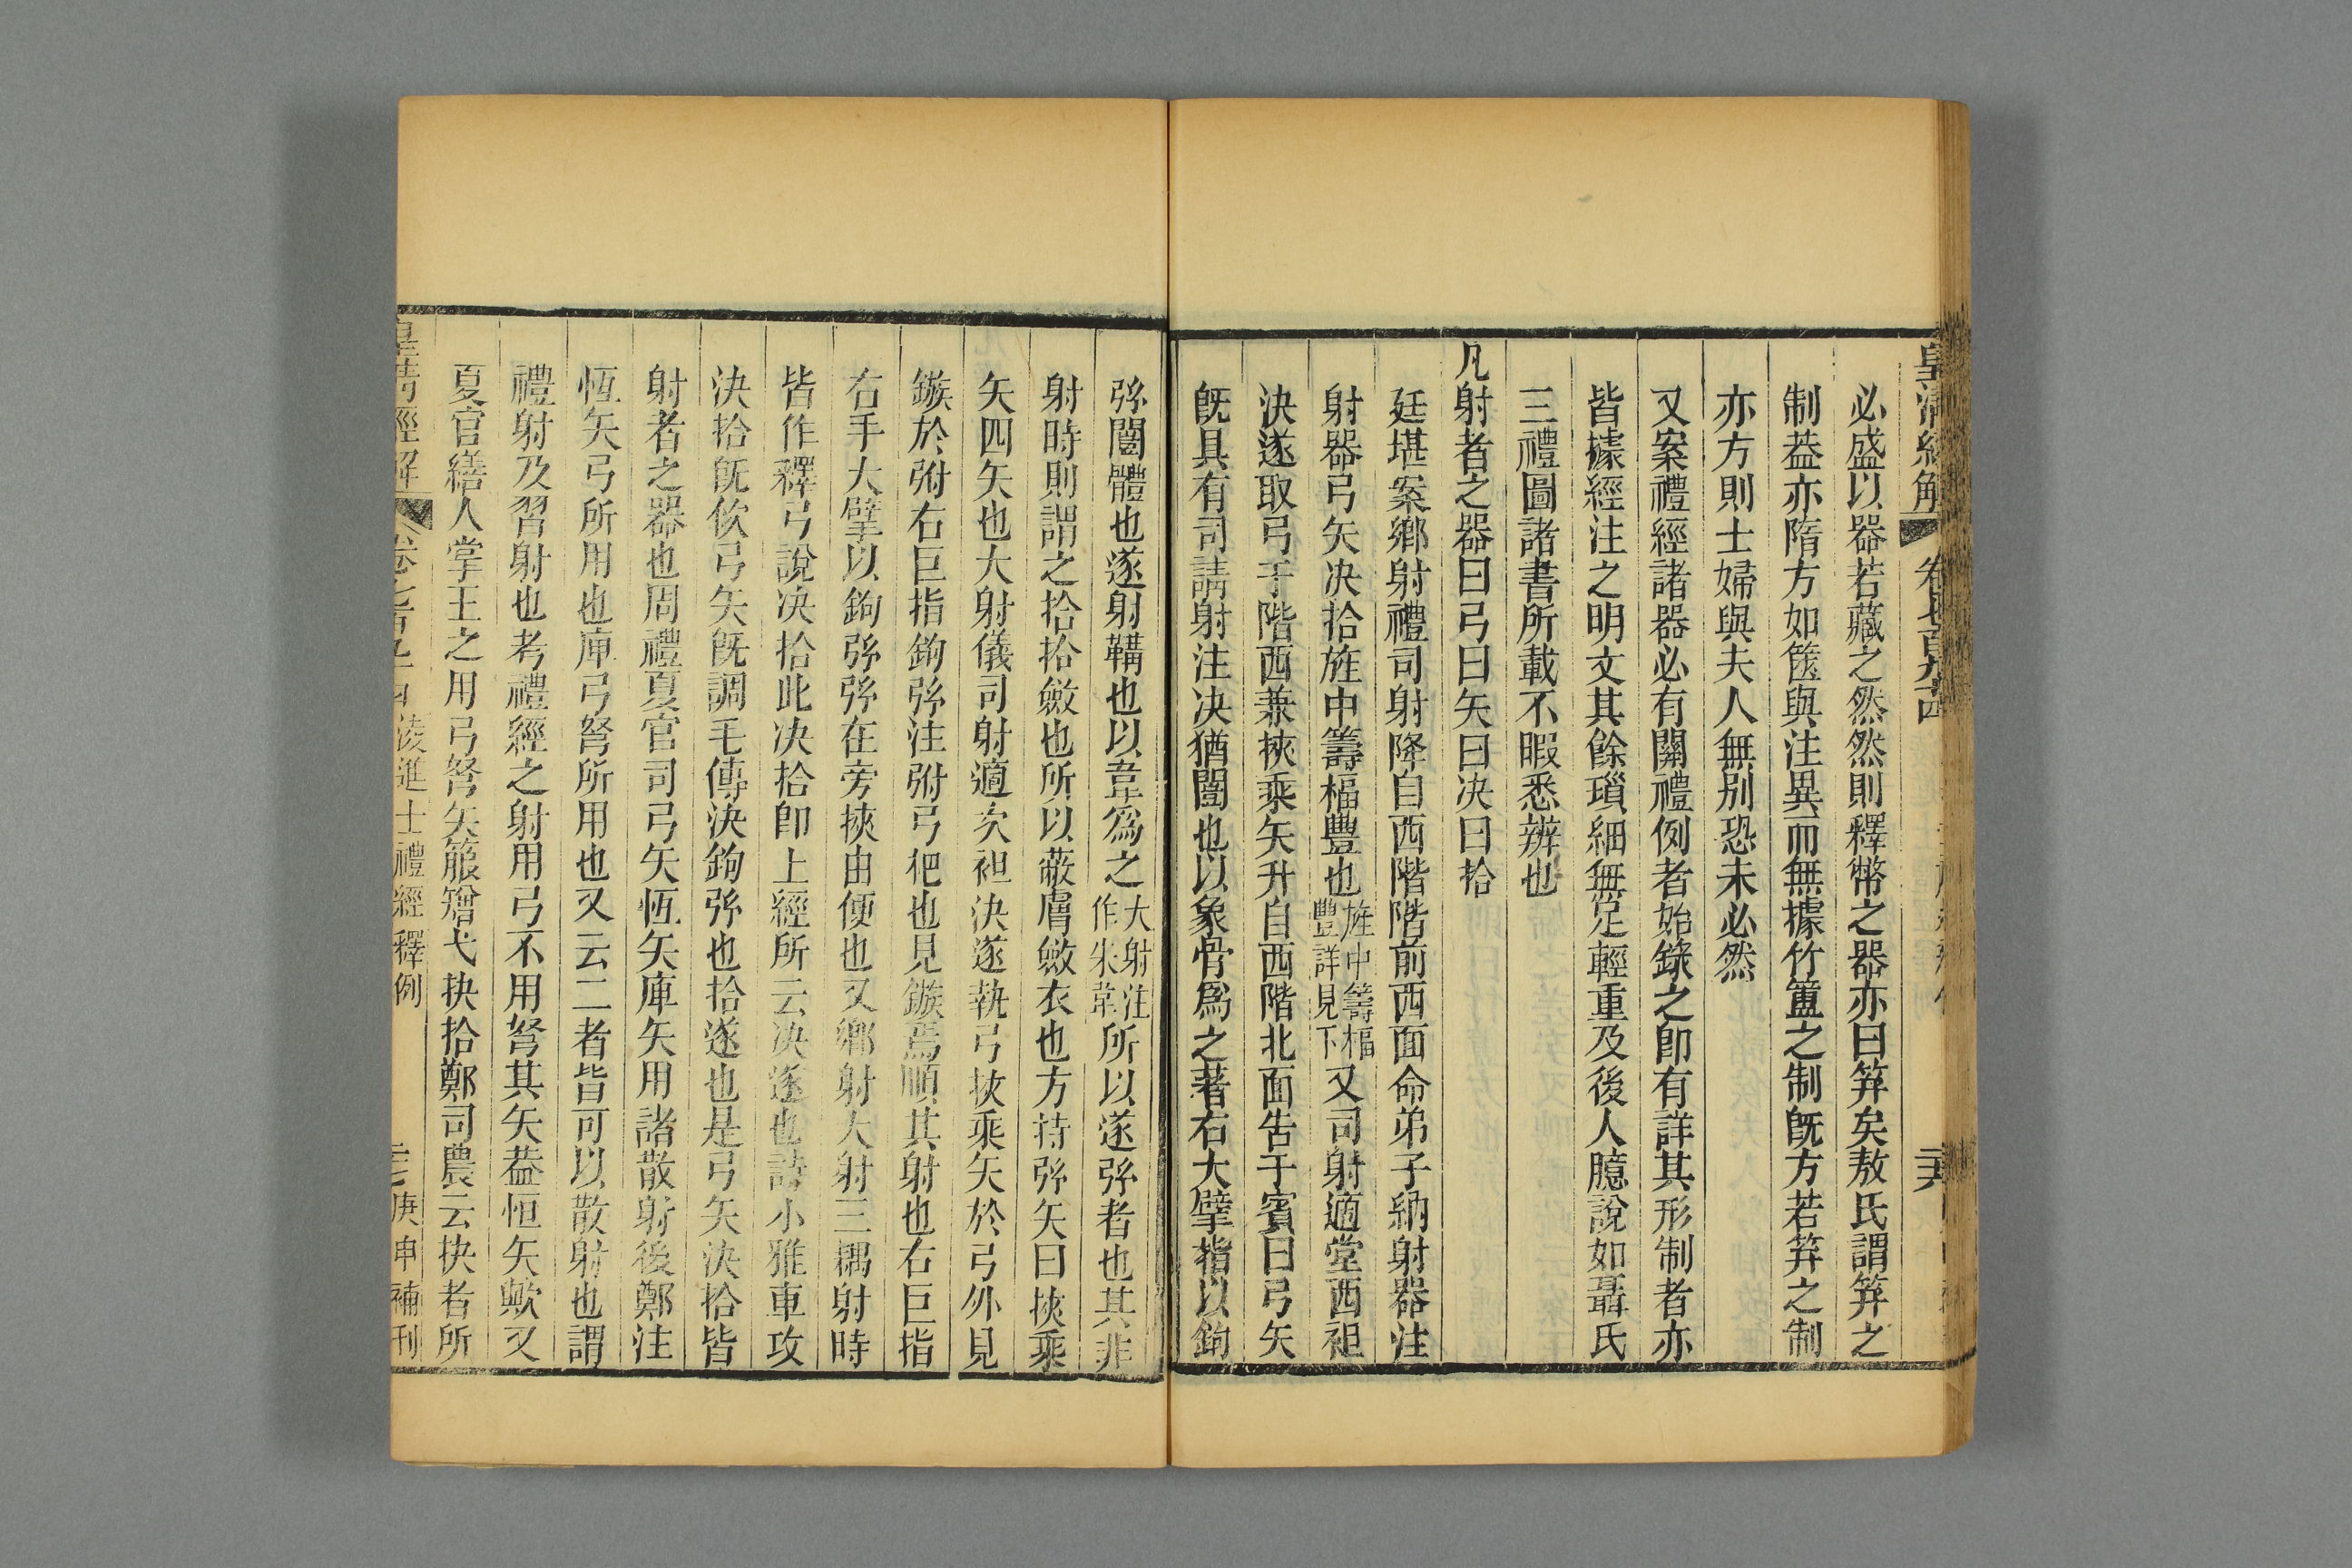 皇清經解 卷七百九十四 二十六
必盛以器若藏之然然則釋幣之器亦曰筭矣敖氏謂筭之
制葢亦隋方如篋與注異而無據竹簠之制旣方若筭之制
亦方則士婦與夫人無別恐未必然
又案禮經諸器必有關禮例者始錄之卽有詳其形制者亦
皆據經注之明文其餘瑣細無足輕重及後人臆說如聶氏
三禮圖諸書所載不暇悉辨也
凡射者之器曰弓曰矢曰決曰拾
廷堪案鄉射禮司射降自西階階前西面命弟子納射器注
射器弓矢決拾旌中籌楅豐也旌中籌楅豐詳見下又司射適堂西袒
決遂取弓于階西兼挾乘矢升自西階北面告于賓曰弓矢
旣具有司請射注決猶闓也以象骨爲之著右大擘指以鉤
弦闓體也遂射韝也以韋爲之大射注作朱韋所以遂弦者也其非
射時則謂之拾拾斂也所以蔽膚斂衣也方持弦矢曰挾乘
矢四矢也大射儀司射適次袒決遂執弓挾乘矢於弓外見
鏃於弣右巨指鉤弦注弣弓弝也見鏃焉順其射也右巨指
右手大擘以鉤弦弦在旁挾由便也又鄉射大射三耦射時
皆作釋弓說決拾此決拾卽上經所云決遂也詩小雅車攻
決拾旣佽弓矢旣調毛傳決鉤弦也拾遂也是弓矢決拾皆
射者之器也周禮夏官司弓矢恆矢庳矢用諸散射後鄭注
恆矢弓所用也庳弓弩所用也又云二者皆可以散射也謂
禮射及習射也考禮經之射用弓不用弩其矢葢恒矢歟又
夏官繕人掌王之用弓弩矢箙矰弋抉拾鄭司農云抉者所
皇清經解 卷七百九十四 淩進士禮經釋例 二十七 庚申補刊